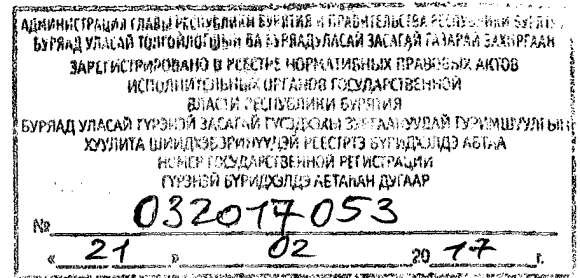 АДМИНИСТРАЦИЯ ГЛАВЫ РЕСПУБЛИКИ БУРЯТИЯ И ПРАВИТЕЛЬСТВА РЕСПУБЛИКИ БУРЯТИЯ
БУРЯАД УЛАСАЙ ТОЛГОЙЛОГШЫН БА БУРЯАД УЛАСАЙ ЗАСАГАЙ ГАЗАРАЙ ЗАХИРГААН
ЗАРЕГИСТРИРОВАНО В РЕЕСТРЕ НОРМАТИВНЫХ ПРАВОВЫХ АКТОВ
ИСПОЛНИТЕЛЬНЫХ ОРГАНОВ ГОСУДАРСТВЕННОЙ
ВЛАСТИ РЕСПУБЛИКИ БУРЯТИЯ
БУРЯАД УЛАСАЙ ГҮРЭНЭЙ ЗАСАГАЙ
ХУУЛИТА РЕЕСТРТЭ БҮРИДХЭЛДЭ АБТАА
НОМЕР ГОСУДАРСТВЕННОЙ РЕГИСТРАЦИИ
ГҮРЭНЭЙ БҮРИДХЭЛДЭ АБТАҺАН ДУГААР
№ 032017053
« 21 » 02 20 17 г.